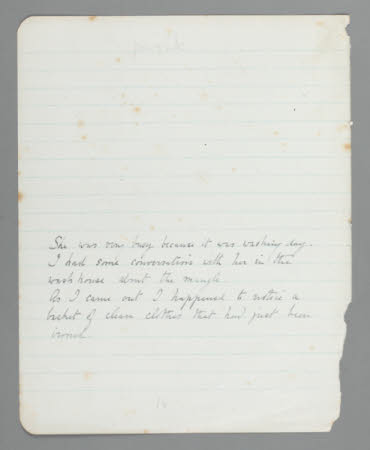 She was very busy because it was washing day.
I had some conversations with her in the
wash house about the mangle.
As I came out I happened to notice a
basket of clean clothes that had just been
ironed.